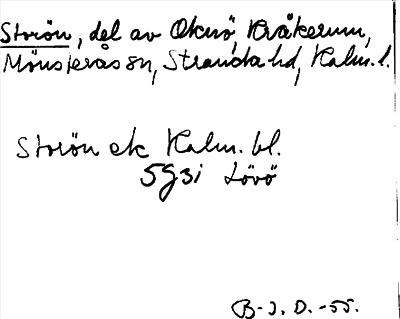 Storön, del av Oknö, Kråkerum,
Mönsterås sn, Stranda hd, Kalm. l.
Storön ek Kalm. bl.
5G3i Lövö
B-J. D. -55.